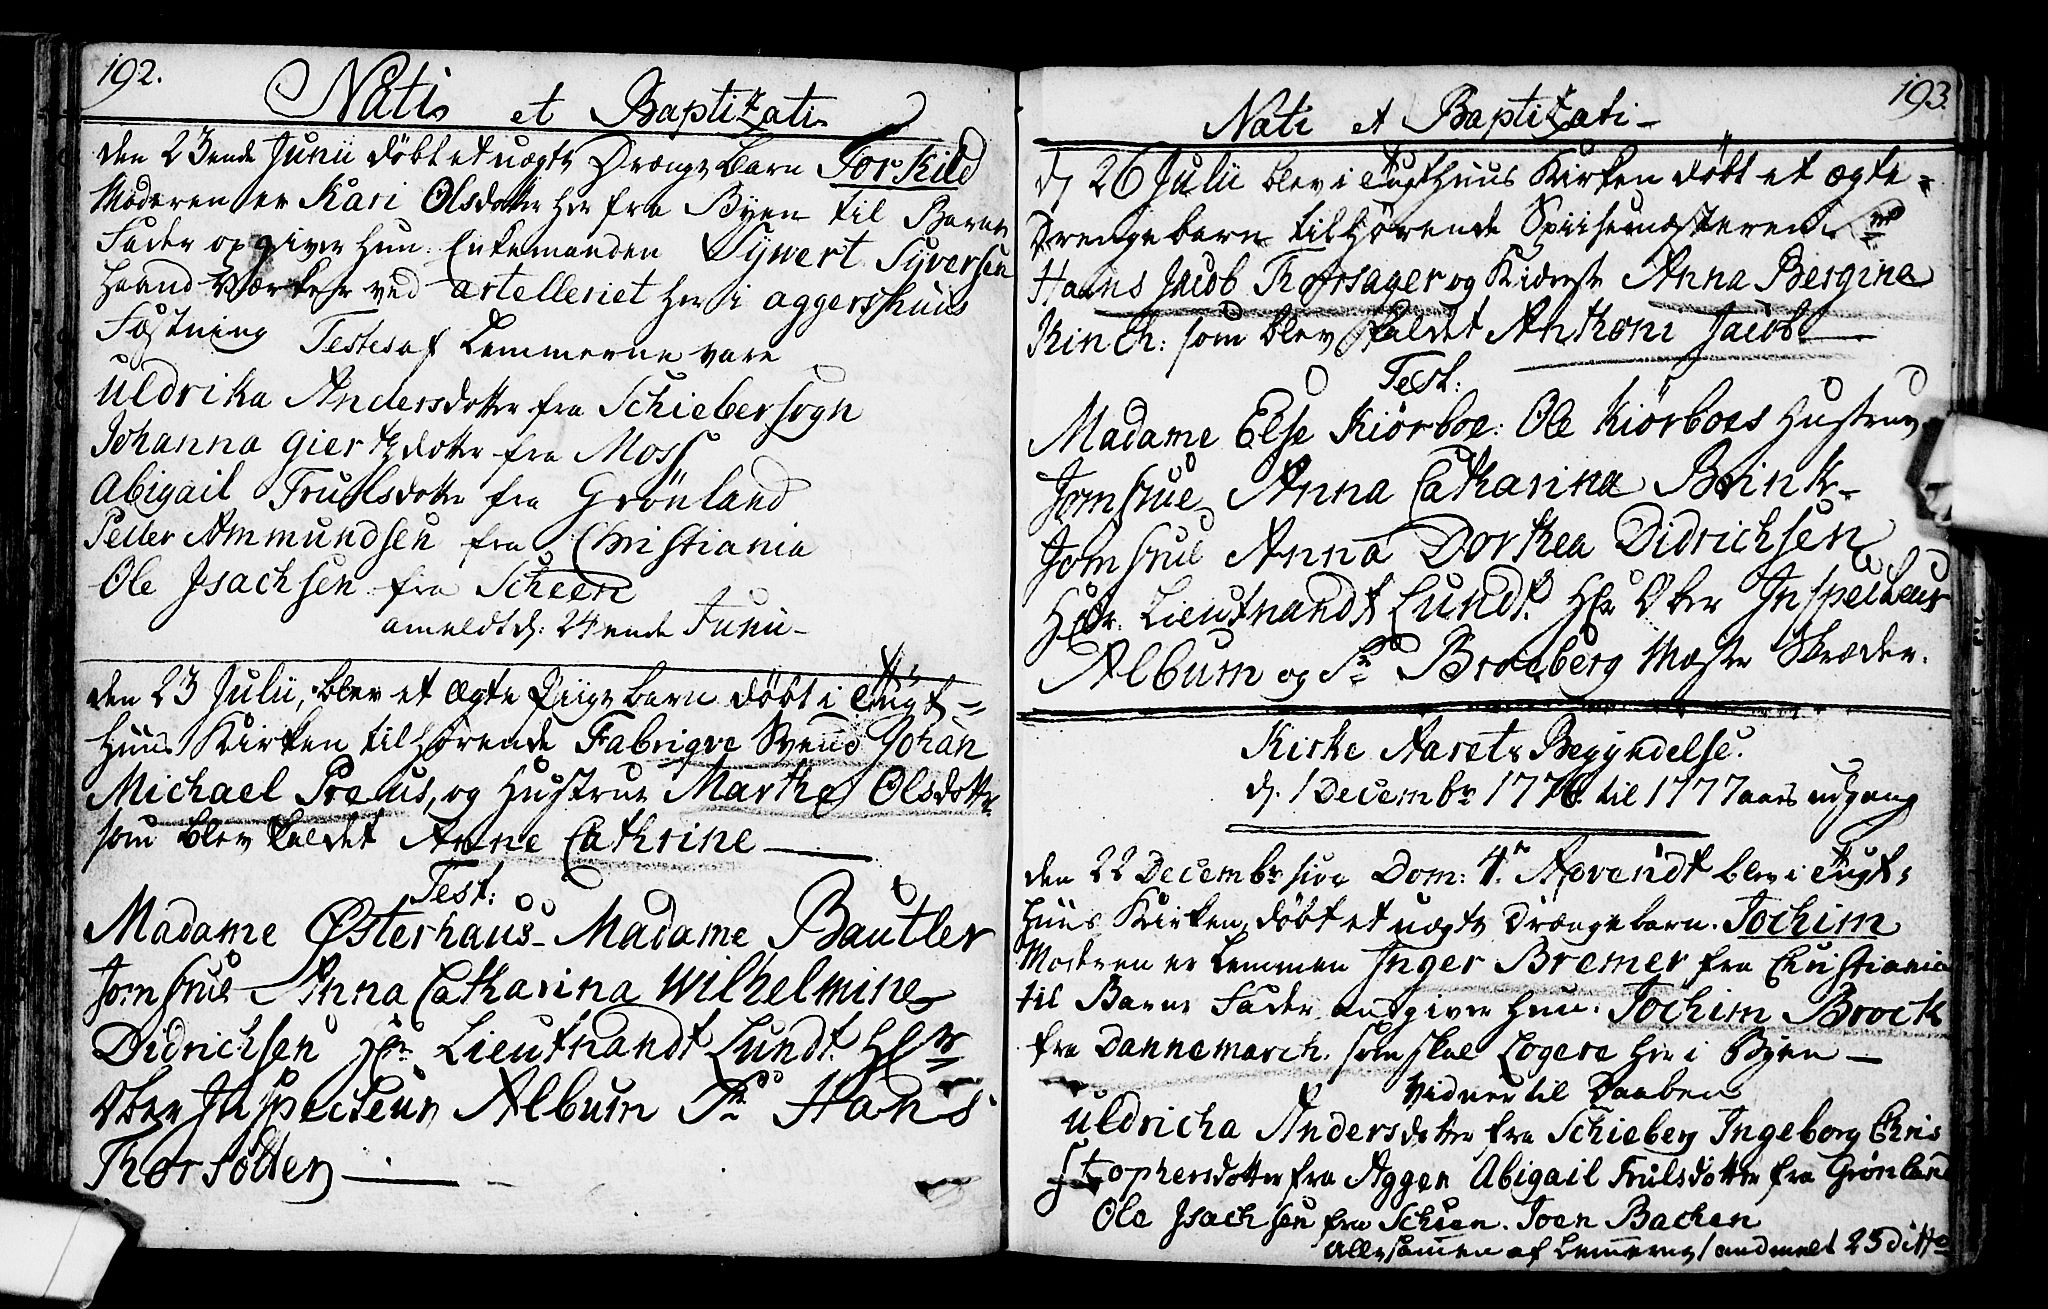 192.
Nati et Baptizati
den 23ende Junii döbt et uægte Drænge barn Torkild
Moderen er Kari Olsdotter her fra Byen til Barne
Fader opgiver hun: Enkemanden Sywert Syversen
Haand værker ved artelleriet her i aggershuus
Fæstning Testes af Lemmerne vare
Uldrika Andersdotter fra Schiebersogn
Johanna Giertzdotter fra Moss
Abigail Trulsdotter fra Grönland
Peder Ammundsen fra Christiania
Ole Isachsen fra Scheen
anmeldt d: 24ende Junii
den 23 Julii, blev et Ægte Piige barn döbt i Tugt-
Huus Kirken tilhörende Fabrique Svend Johan
Michael Preus, og Hustrue Marthe Olsdotter
som blev kaldet Anne Cathrine
Test:
Madame Østerhaus - Madame Bautler
Jomfrue Anna Catharina Wilhelmine
Didrichsen Hr: Lieutnandt Lundt. Hr
Ober Inspecteur Album Sr Hans
Thorsölter
193.
Nati et Baptizati
d 26 Julii blev i Tugthuus Kirken döbt et ægte
Drengebarn tilhörende Spiisemesteren Sr
Hans Jacob Thorsager og Kiereste Anna Bergine
Kinch: som blev kaldet Anthoni Jacob
Test:
Madame Else Kiörboe: Ole Kiörboes Hustrue
Jomfrue Anna Catharina Brink
Jomfrue Anna Dorthea Didrichsen
Hr. Lieutnandt Lundt. Hr Ober Inspecteur
Album og Sr Broeberg Mester Skræder.
Kirke Aarets Begyndelse.
d. 1 Decembr 1776 til 1777 aars udgang
den 22 Decembr Dom: 4. Advendt blev i Tugt-
Huus Kirken döbt et uægte Drængebarn. Jochim
Moderen er Lemmen Inger Bremer fra Christiania
til Barne Fader angiver hun: Jochim Brock
fra Dannemarch. som skal Logere her i Byen
Vidner til Daaben
Uldricha Andersdotter fra Schieberg Ingeborg Chris
stophersdotter fra Aggen Abigail Trulsdotter fra Grönland
Ole Isachsen fra Scheen. Joen Bachen
Allesamen af Lemmerne / andmelt 25 ditto